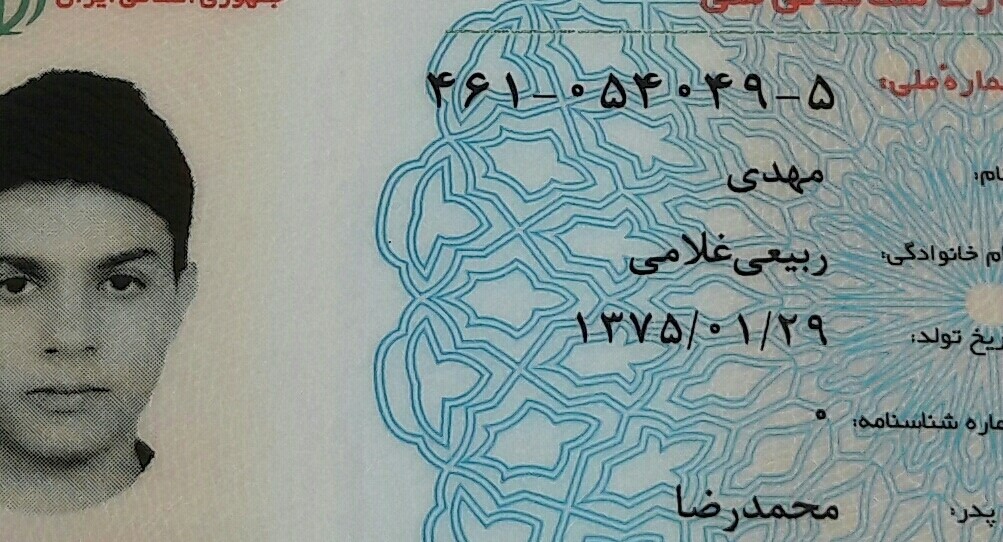 جمهوری اسلامی ایران
ملی:
۴۶۱-۰۵۴۰۴۹-۵
مهدی
خانوادگی: ربیعی‌غلامی
تولد: ۱۳۷۵/۰۱/۲۹
شناسنامه: ۰
پدر: محمدرضا